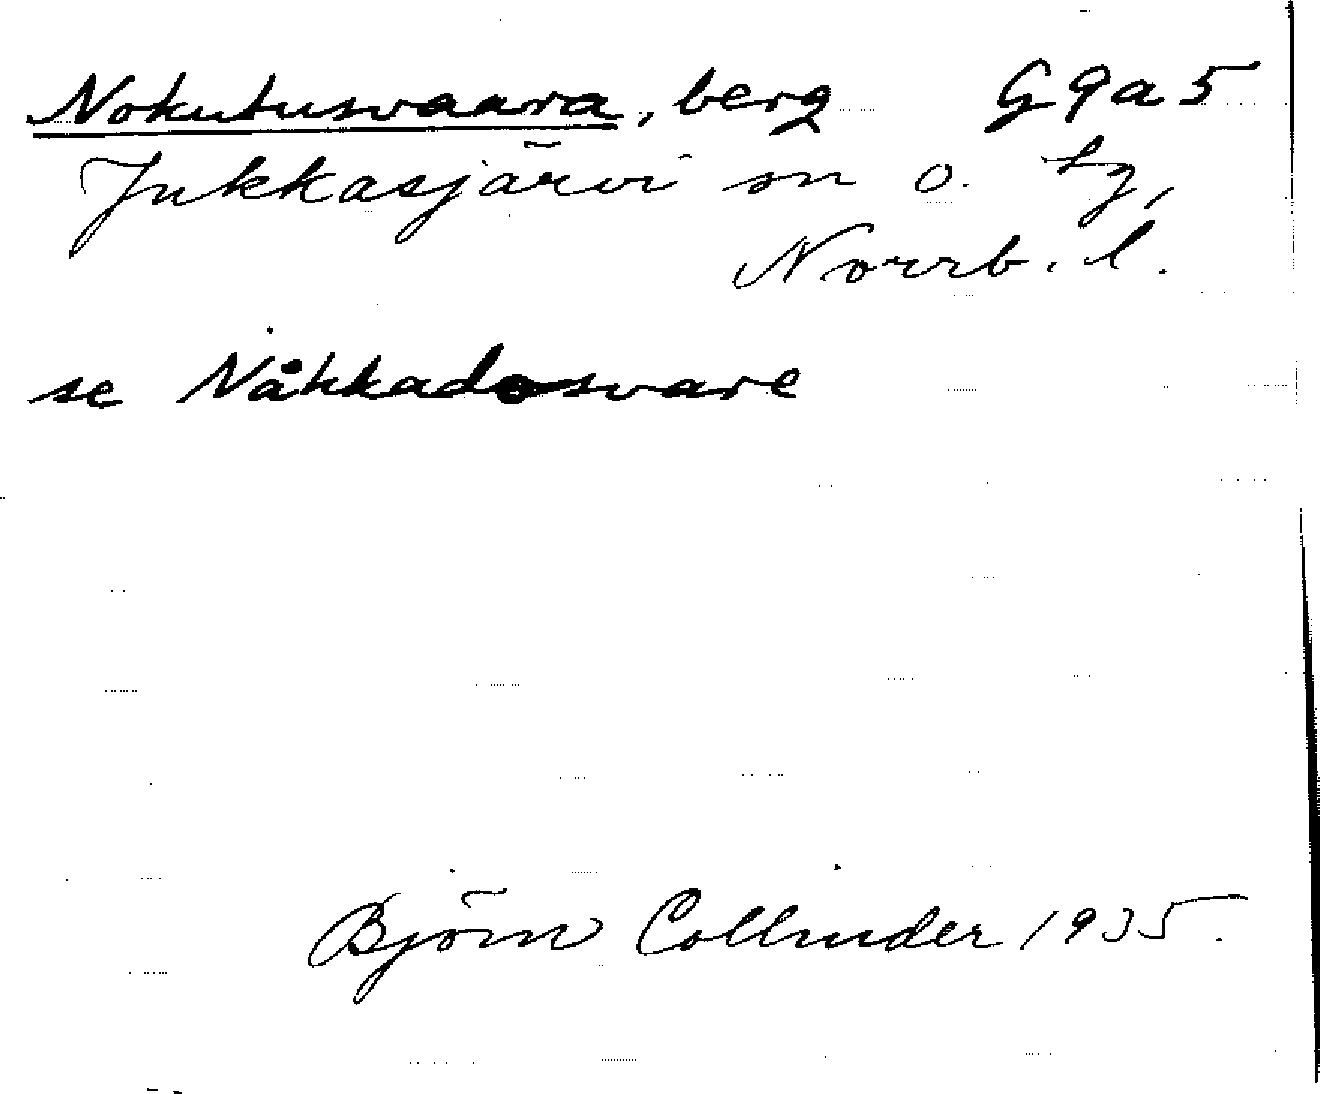 Nokutusvaara, berg G9a5
Jukkasjärvi sn o. tg,
Norrb. l.
se Nåkkadosvare
Björn Collinder 1935.